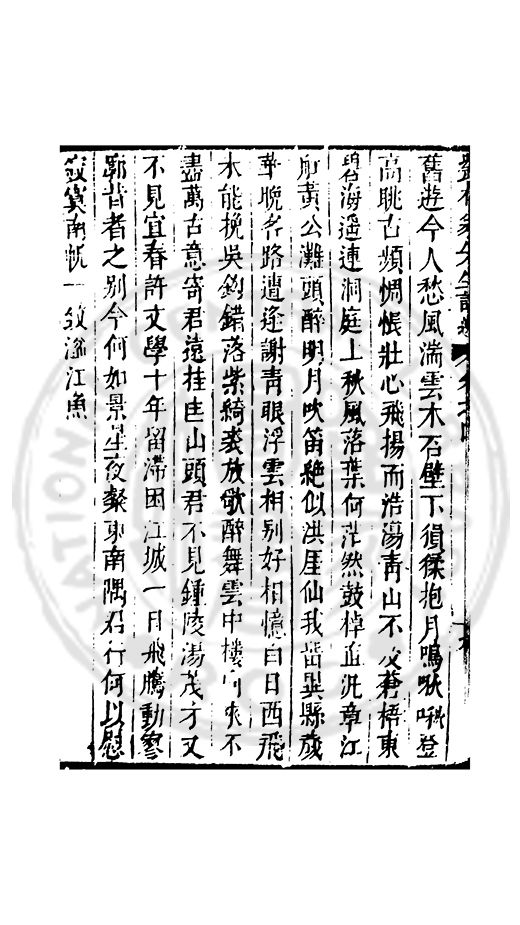 舊遊今人愁風湍雲木石壁下猿猱抱月鳴啾啾登
高眺古頻惆悵壯心飛揚而浩蕩青山不斷蒼梧東
碧海遥連洞庭上秋風落葉何茫然鼓棹直泝章江
船黄公灘頭醉明月吹笛絶似洪厓仙我昔與縣歲
華晚客路遭逢謝青眼浮雲相别好相憶白日西飛
未能挽吳鉤錯落紫綺裘放歌醉舞雲中樓向來不
盡萬古意寄君遠挂匡山頭君不見鍾陵湯茂才又
不見宜春許文學十年留滯困江城一日飛騰動寥
廓昔者之别今何如景星夜粲東南隅君行何以慰
南帆一
江魚